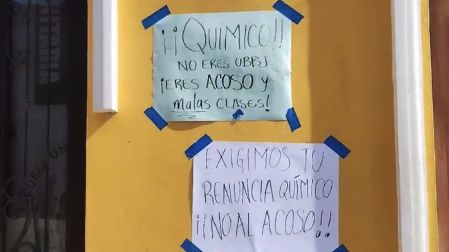 ¡¡QUIMICO!!
NO ERES UBBJ
¡ERES ACOSO y
malas CLASES!
EXIGIMOS TU
RENUNCIA QUÍMICO
¡¡NO AL ACOSO!!